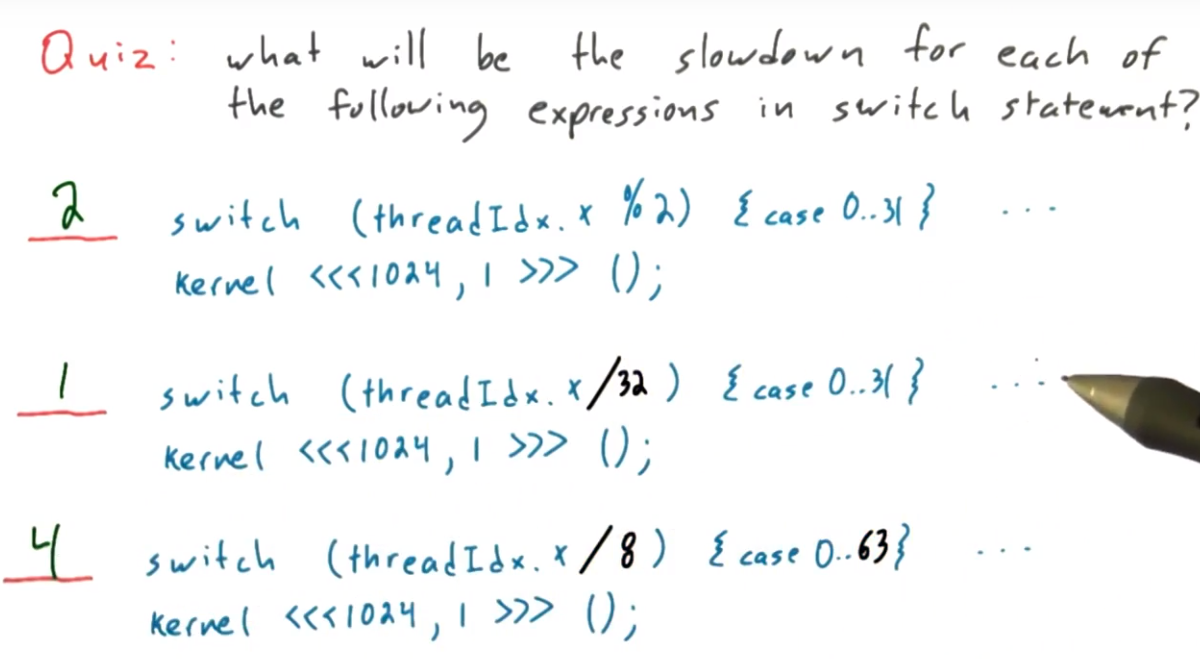 Quiz: what will be the slowdown for each of
the following expressions in switch statement?
2 switch (threadIdx.x %2) { case 0..31 } ...
kernel <<<1024, 1 >>> ();
1 switch (threadIdx.x/32) { case 0..31 } ...
kernel <<<1024, 1 >>> ();
4 switch (threadIdx.x/8) { case 0..63} ...
kernel <<<1024, 1 >>> ();